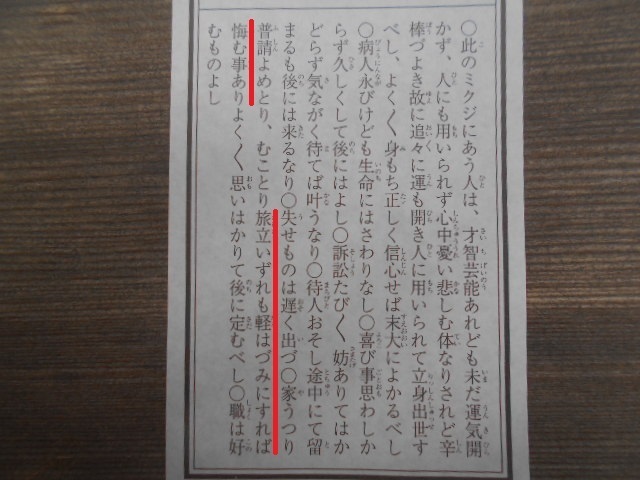 〇此のミクジにあう人は、才智芸能あれども未だ運気開
かず、人にも用いられず心中憂い悲しむ体なりされど辛
棒づよき故に追々に運も開き人に用いられて立身出世す
べし、よく〱身もち正しく信心せば末大によかるべし
〇病人永びけども生命にはさわりなし〇喜び事思わしか
らず久しくして後にはよし〇訴訟たび〱妨ありてはか
どらず気ながく待てば叶うなり〇待人おそし途中にて留
まるも後には来るなり〇失せものは遅く出づ〇家うつり
普請よめとり、むことり旅立いずれも軽はづみにすれば
悔む事ありよく〱思いはかりて後に定むべし〇職は好
むものよし